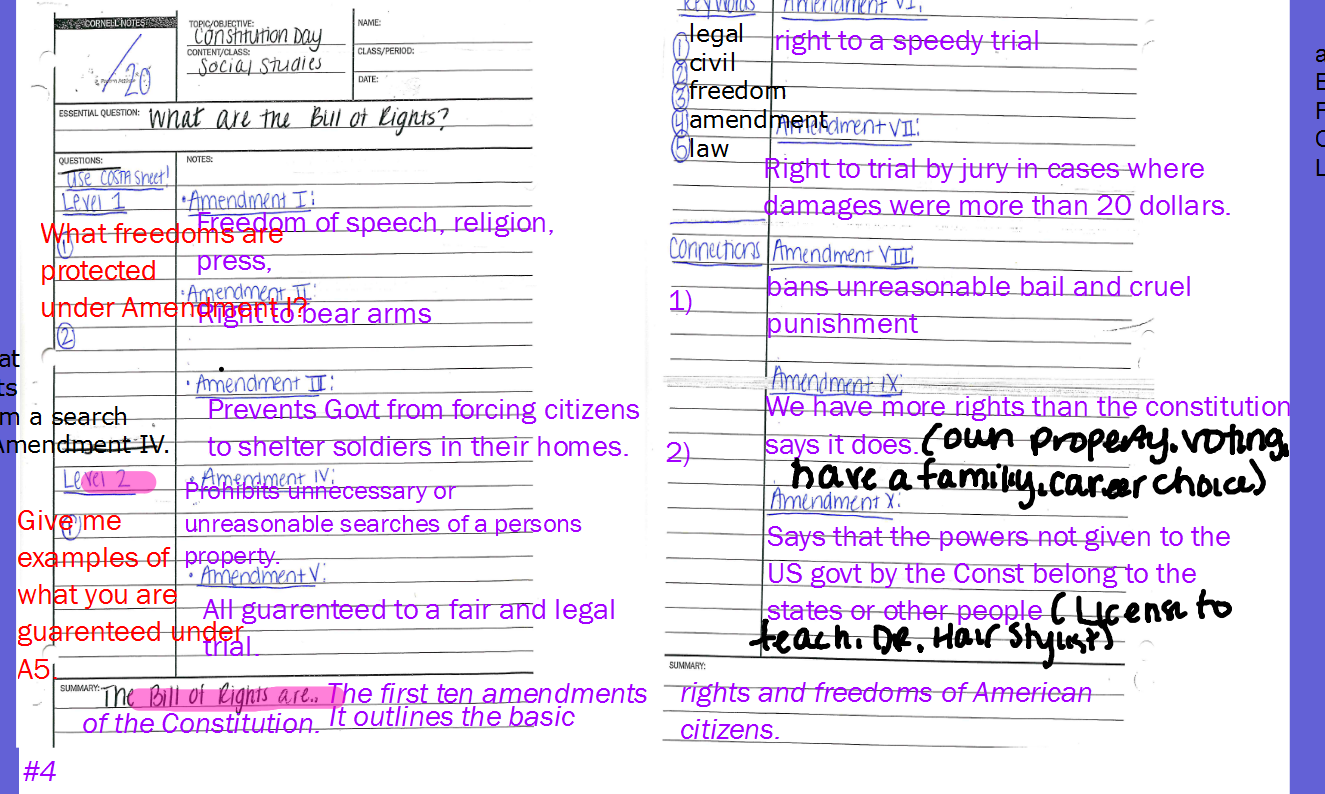 CORNELL NOTES
TOPIC/OBJECTIVE:
Constitution Day
CONTENT/CLASS:
Social Studies
NAME:
CLASS/PERIOD:
DATE:
/20
ESSENTIAL QUESTION: What are the Bill of Rights?
QUESTIONS:
NOTES:
Use COSTA sheet!
Level 1
• Amendment I:
Freedom of speech, religion,
press,
①
What freedoms are
protected
under Amendment I?
• Amendment II:
Right to bear arms
②
at
ts
m a search
Amendment IV.
• Amendment III:
Prevents Govt from forcing citizens
to shelter soldiers in their homes.
Level 2
• Amendment IV:
Prohibits unnecessary or
unreasonable searches of a persons
property.
①
Give me
examples of
what you are
guarenteed under
A5.
• Amendment V:
All guarenteed to a fair and legal
trial.
SUMMARY: The Bill of Rights are.. The first ten amendments
of the Constitution. It outlines the basic
#4
Key Words
① legal
② civil
③ freedom
④ amendment
⑤ law
Amendment VI:
right to a speedy trial
Amendment VII:
Right to trial by jury in cases where
damages were more than 20 dollars.
Connections
1)
2)
Amendment VIII:
bans unreasonable bail and cruel
punishment
Amendment IX:
We have more rights than the constitution
says it does. (own property, voting,
have a family, career choice)
Amendment X:
Says that the powers not given to the
US govt by the Const belong to the
states or other people (License to
teach, DR, Hair Stylist)
SUMMARY:
rights and freedoms of American
citizens.